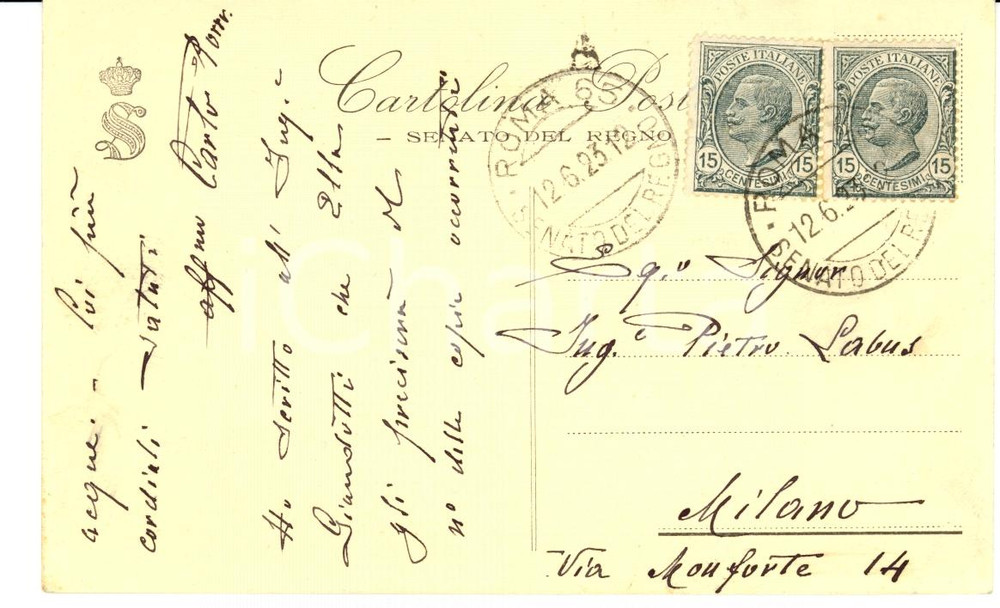 S
Cartolina Post
SENATO DEL REGNO
ROMA 65
12.6.23.12
SENATO DEL REGNO
POSTE ITALIANE
15 CENTESIMI 15
POSTE ITALIANE
15 CENTESIMI 15
ROMA
12.6.23
SENATO DEL RE
Signor
Ing.e Pietro Labus
Milano
Via Monforte 14
Ho scritto all' Ing.e
Giandotti che Ella
gli preciserà il
n° delle copie occorrenti
acque. - Poi più
cordiali saluti
aff.mo Carlo
iCharta